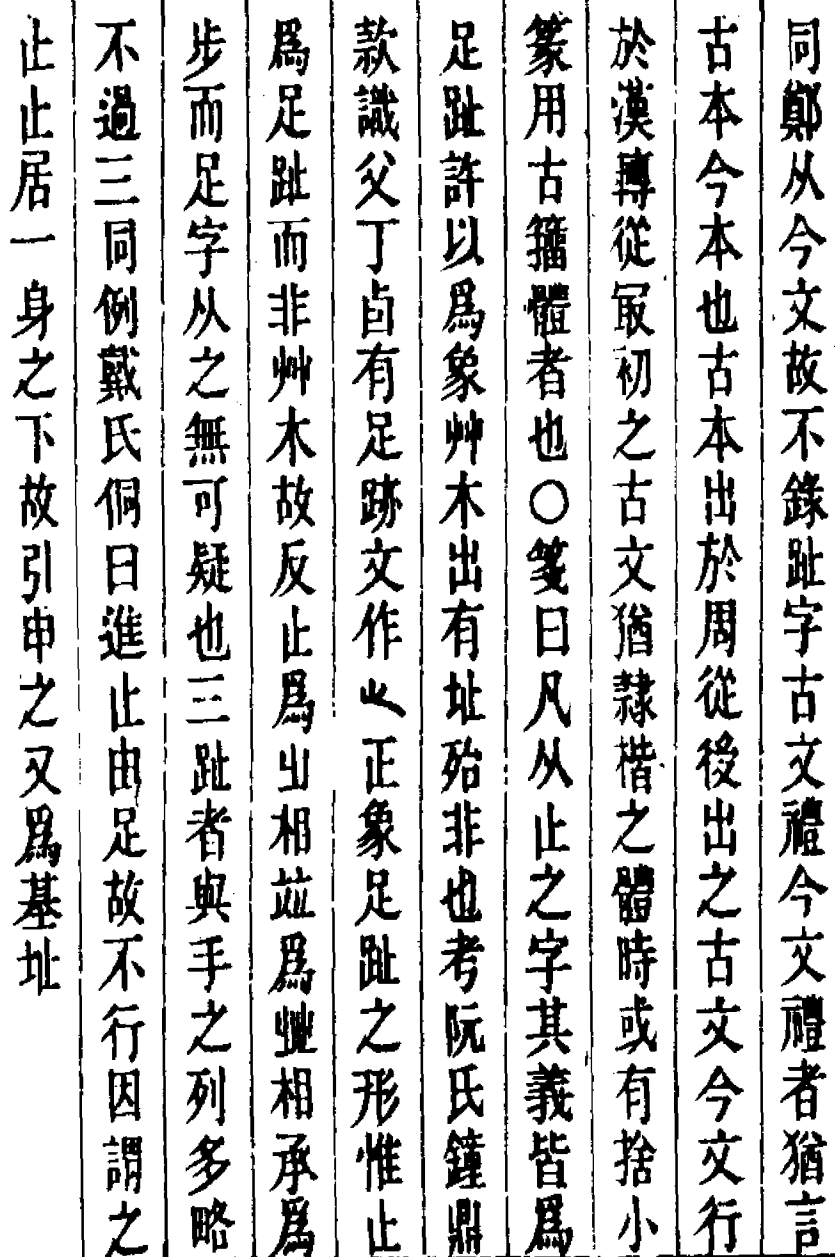 同鄭从今文故不錄趾字古文禮今文禮者猶言
古本今本也古本出於周從後出之古文今文行
於漢轉從冣初之古文猶隸楷之體時或有捨小
篆用古籒體者也○箋曰凡从止之字其義皆爲
足趾許以爲象艸木出有址殆非也考阮氏鐘鼎
款識父丁卣有足跡文作止正象足趾之形惟止
爲足趾而非艸木故反止爲𣥂相竝爲癶相承爲
步而足字从之無可疑也三趾者與手之列多略
不過三同例戴氏侗曰進止由足故不行因謂之
止止居一身之下故引申之又爲基址